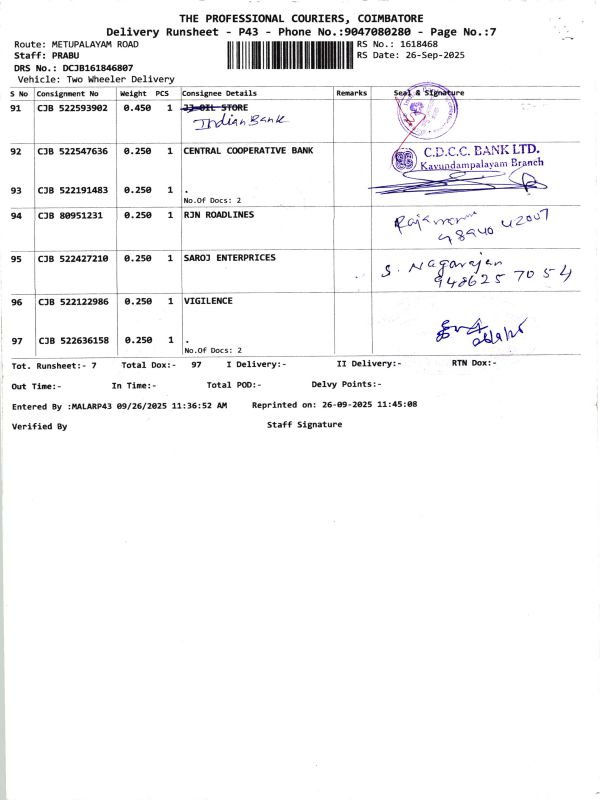 THE PROFESSIONAL COURIERS, COIMBATORE
Delivery Runsheet - P43 - Phone No.:9047080280 - Page No.:7
Route: METUPALAYAM ROAD RS No.: 1618468
Staff: PRABU RS Date: 26-Sep-2025
DRS No.: DCJB161846807
Vehicle: Two Wheeler Delivery
S No Consignment No Weight PCS Consignee Details Remarks Seal & Signature
91 CJB 522593902 0.450 1 JJ OIL STORE
Indian Bank
92 CJB 522547636 0.250 1 CENTRAL COOPERATIVE BANK C.D.C.C. BANK LTD.
Kavundampalayam Branch
93 CJB 522191483 0.250 1 .
No.Of Docs: 2
94 CJB 80951231 0.250 1 RJN ROADLINES
98940 42007
95 CJB 522427210 0.250 1 SAROJ ENTERPRICES S. Nagarajan
948625 7054
96 CJB 522122986 0.250 1 VIGILENCE
97 CJB 522636158 0.250 1 .
No.Of Docs: 2
Tot. Runsheet:- 7 Total Dox:- 97 I Delivery:- II Delivery:- RTN Dox:-
Out Time:- In Time:- Total POD:- Delvy Points:-
Entered By :MALARP43 09/26/2025 11:36:52 AM Reprinted on: 26-09-2025 11:45:08
Verified By Staff Signature